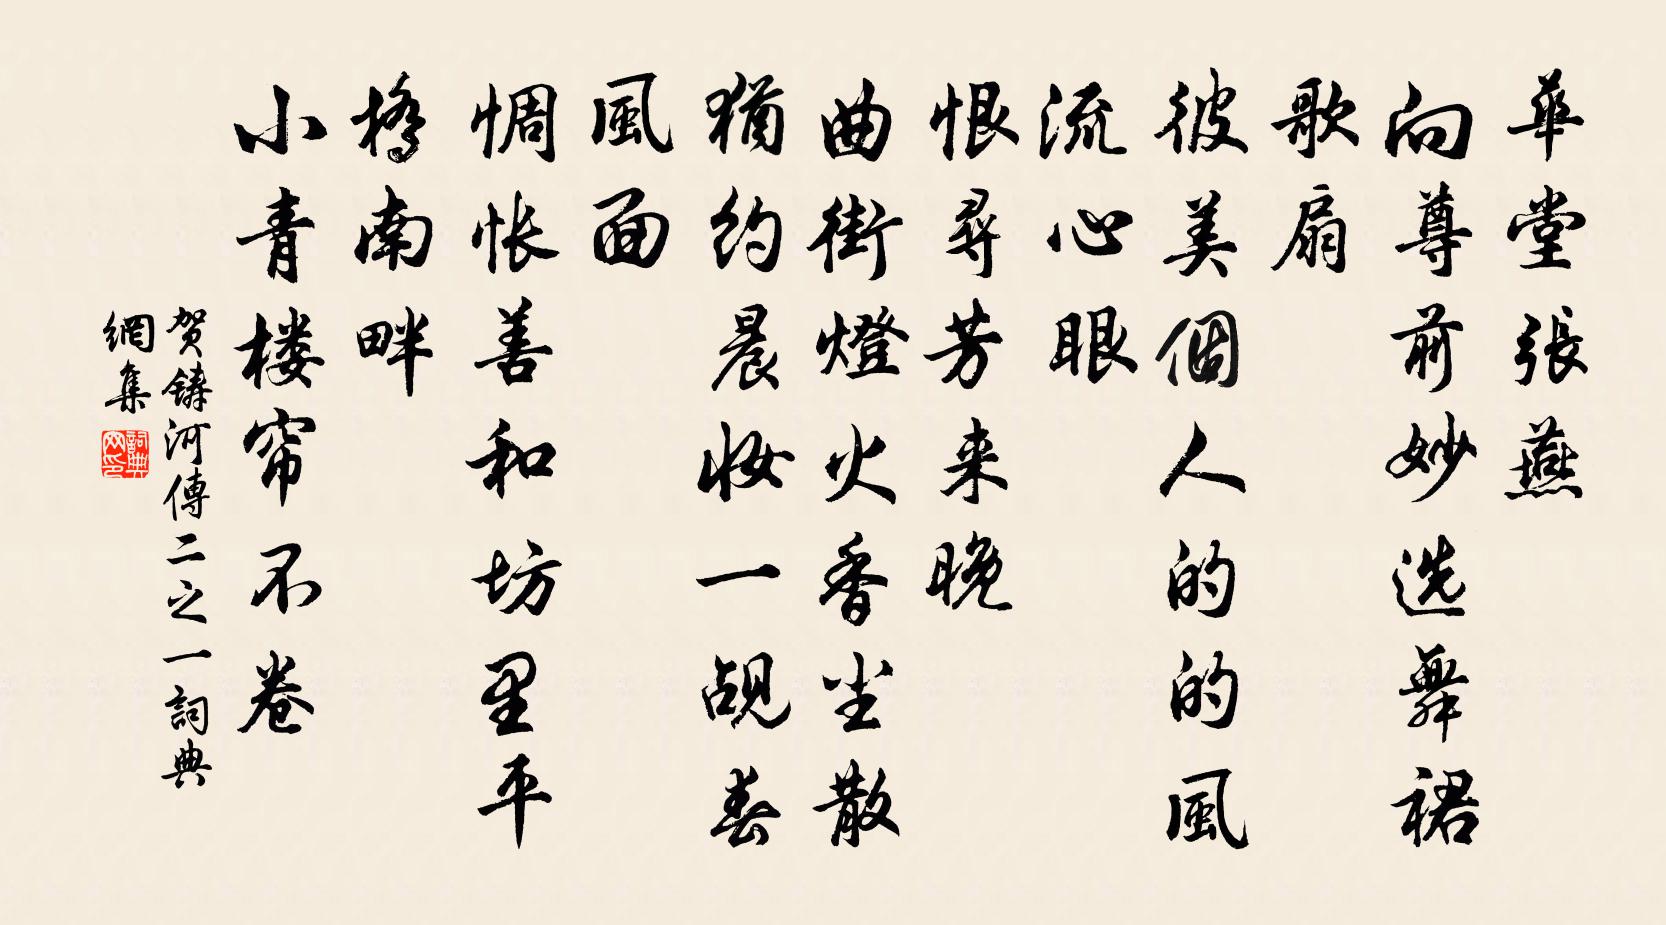 華堂張燕
向尊前妙选舞裙
歌扇
彼美個人的的風
流心眼
恨尋芳来晚
曲街燈火香尘散
猶約晨妆一觇春
風面
惆怅善和坊里平
橋南畔
小青楼帘不卷
贺鑄河傳二之一詞典
網集
詞典网印